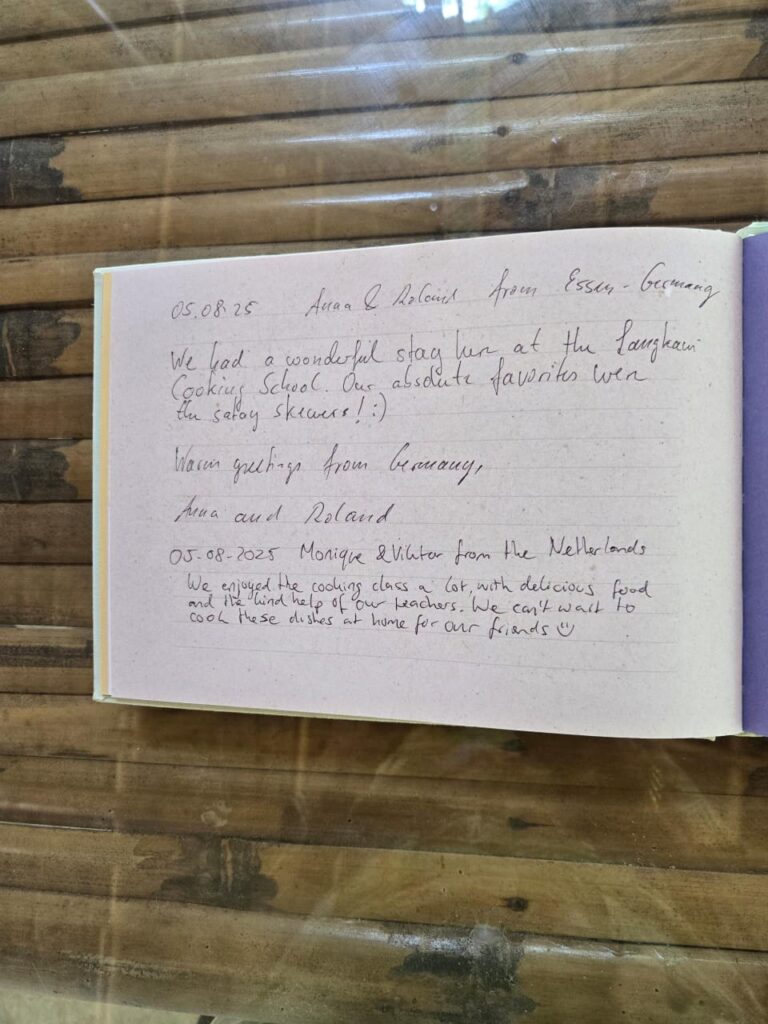 05.08.25 Anna & Roland from Essen - Germany
We had a wonderful stay here at the Langkawi
Cooking School. Our absolute favorites were
the satay skewers! :)
Warm greetings from Germany,
Anna and Roland
05-08-2025 Monique & Viktor from the Netherlands
We enjoyed the cooking class a lot, with delicious food
and the kind help of our teachers. We can't wait to
cook these dishes at home for our friends ☺